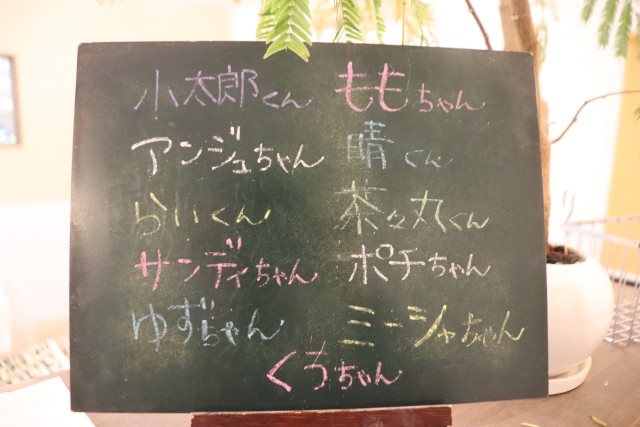 小太郎くん ももちゃん
アンジュちゃん 晴くん
らいくん 茶々丸くん
サンディちゃん ポチちゃん
ゆずちゃん ミーシャちゃん
くうちゃん